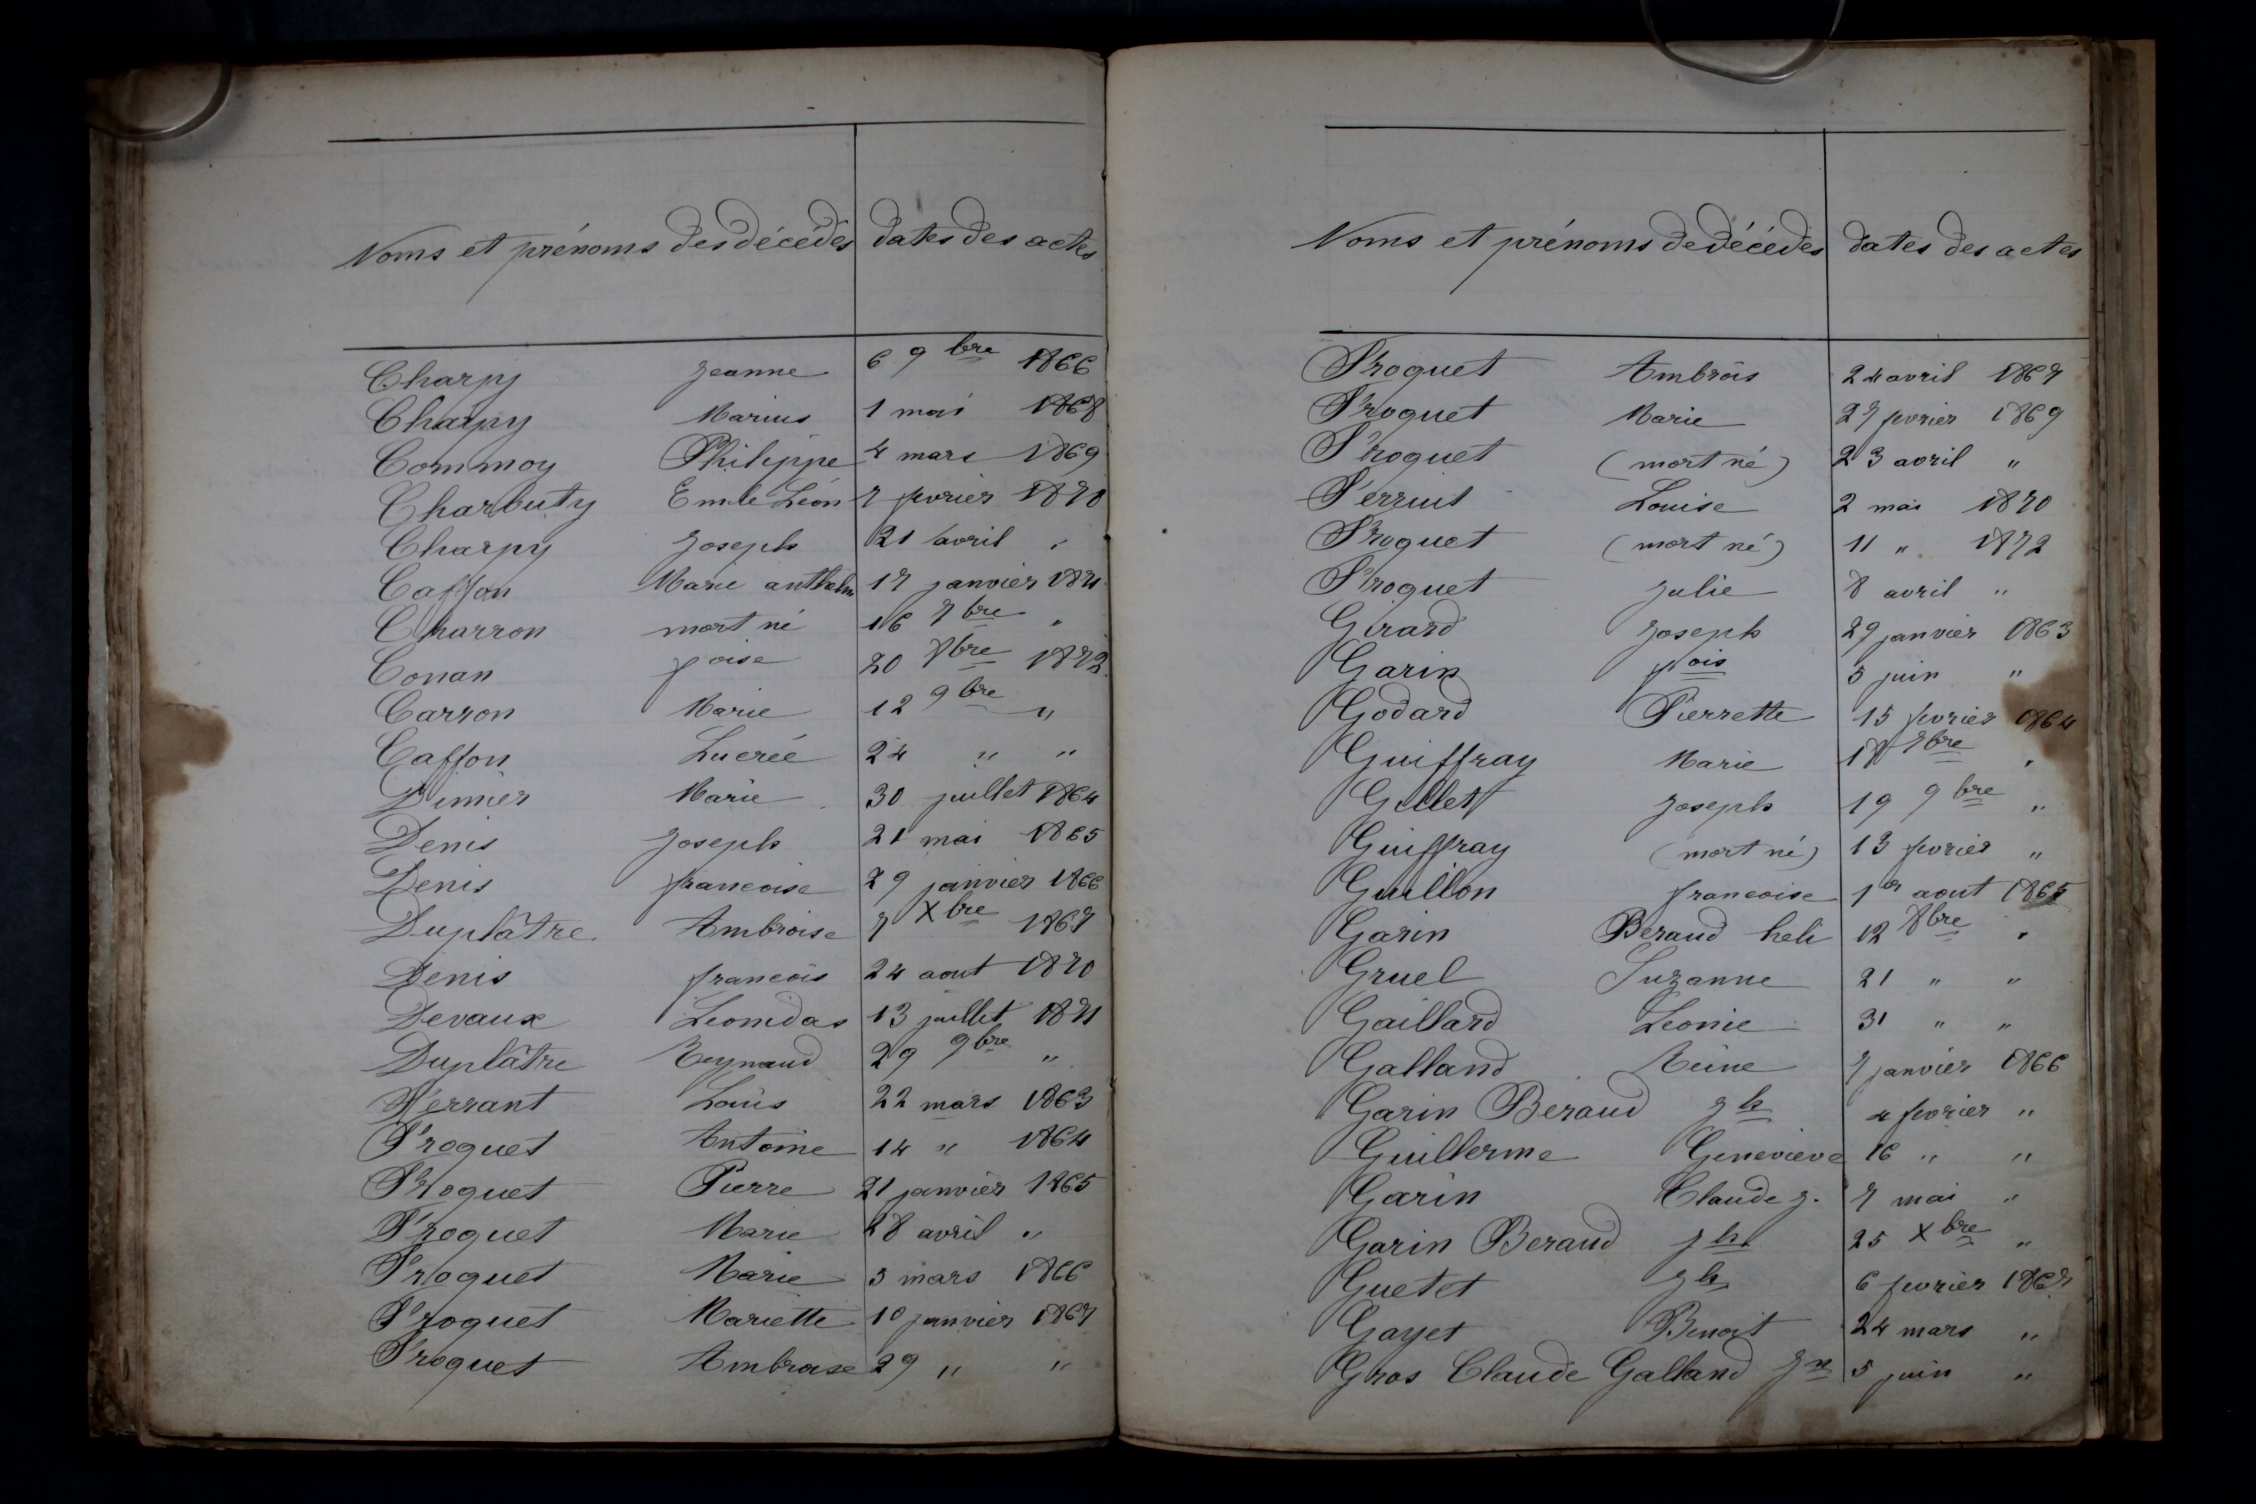 Noms et prénoms des décédés dates des actes
Charpy Jeanne 6 9bre 1866
Charpy Marius 1 mai 1868
Commoy Philippe 4 mars 1869
Charbuty Emile Léon 7 fvrier 1870
Charpy Joseph 21 avril "
Caffon Marie anthelm 17 janvier 1871
Charron mort né 16 7bre "
Conan foise 20 8bre 1872
Carron Marie 12 9bre "
Caffon Lucrée 24 " "
Dimier Marie 30 juillet 1864
Denis Joseph 21 mai 1865
Denis francoise 29 janvier 1866
Duplâtre Ambroise 7 Xbre 1867
Denis francois 24 aout 1870
Devaux Leonidas 13 juillet 1871
Duplâtre Reynaud 29 9bre "
Ferrant Louis 22 mars 1863
Froquet Antoine 14 " 1864
Froquet Pierre 21 janvier 1865
Froquet Marie 28 avril "
Froquet Marie 3 mars 1866
Froquet Mariette 10 janvier 1867
Froquet Ambroise 29 " "
Noms et prénoms de décédés dates des actes
Froquet Ambrois 24 avril 1867
Froquet Marie 27 fvrier 1869
Froquet (mort né) 23 avril "
Louise 2 mai 1870
Froquet (mort né) 11 " 1872
Froquet Julie 8 avril "
Girard Joseph 29 janvier 1863
Garin fois 5 juin "
Godard Pierrette 15 fvrier 1864
Guiffray Marie 18 7bre "
Gillet Joseph 19 9bre "
Guiffray (mort né) 13 fvrier "
Guillon francoise 1er aout 1865
Garin Beraud heli 12 8bre "
Gruel Suzanne 21 " "
Gaillard Leonie 31 " "
Galland Reine 7 janvier 1866
Garin Beraud Jh 4 fvrier "
Guillerme Genevieve 16 " "
Garin Claude J. 7 mai "
Garin Beraud Jh 25 Xbre "
Guetet Jh 6 fvrier 1867
Gayet Benoit 24 mars "
Gros Claude Galland Jn 5 juin "